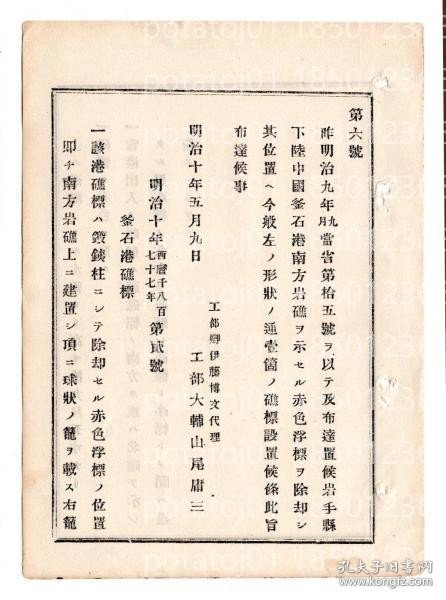 第六號
昨明治九年九月當省第拾五號ヲ以テ及布達置候岩手縣
下陸中國釜石港南方岩礁ヲ示セル赤色浮標ヲ除却シ
其位置ヘ今般左ノ形狀ノ通壹箇ノ礁標設置候條此旨
布達候事
工部卿伊藤博文代理
明治十年五月九日 工部大輔山尾庸三
明治十年西曆千八百七十七年第貳號
釜石港礁標
一該港礁標ハ鍛鉄柱ニシテ除却セル赤色浮標ノ位置
即チ南方岩礁上ニ建置シ頂ニ球狀ノ籠ヲ載ス右籠
potatoj01 18501236
孔夫子旧书网